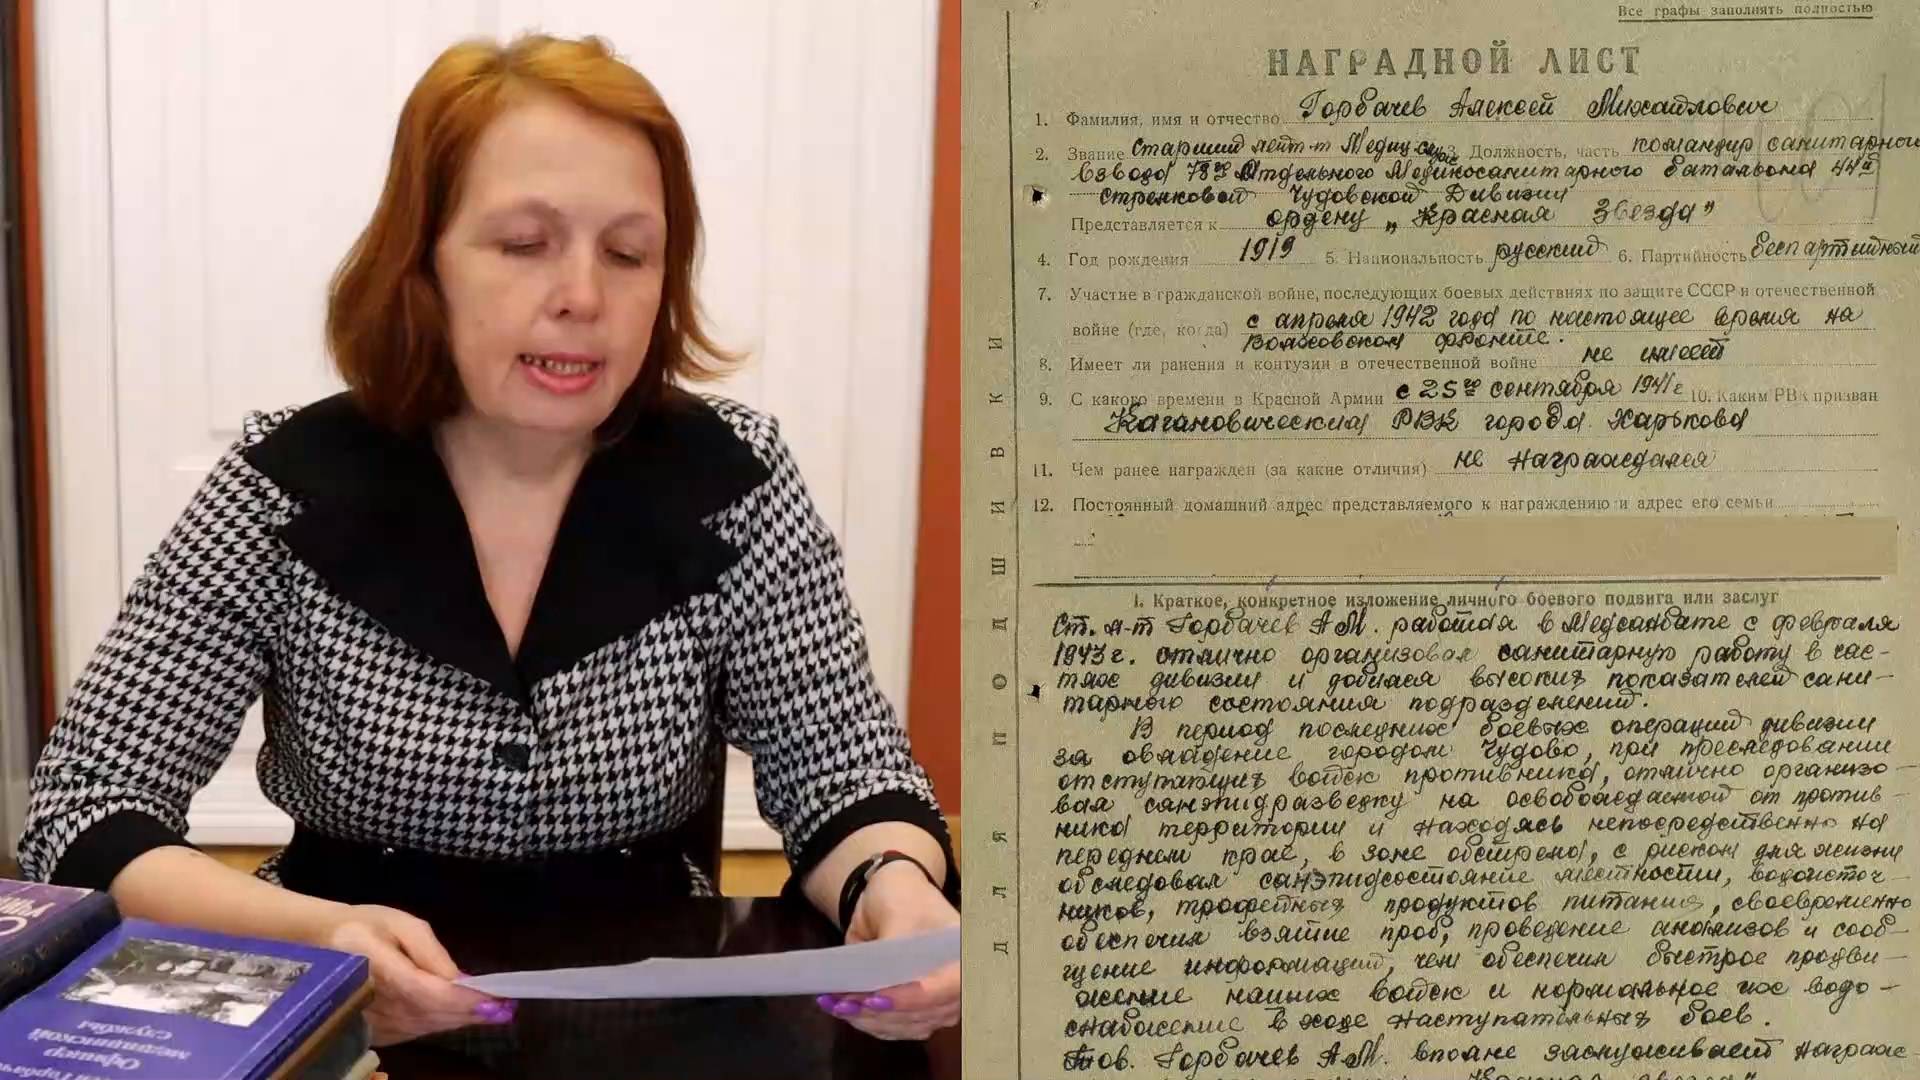 Все графы заполнять полностью
НАГРАДНОЙ ЛИСТ
1. Фамилия, имя и отчество Горбачев Алексей Михайлович
2. Звание Старший лейт-т Медиц. служ 3. Должность, часть командир санитарного
взвода 78го Отдельного Медикосанитарного батальона 44й
стрелковой Чудовской Дивизии
Представляется к ордену „Красная Звезда"
4. Год рождения 1919 5. Национальность русский 6. Партийность беспартийный
7. Участие в гражданской войне, последующих боевых действиях по защите СССР и отечественной
войне (где, когда) с апреля 1942 года по настоящее время на
Волховском фронте.
8. Имеет ли ранения и контузии в отечественной войне не имеет
9. С какого времени в Красной Армии с 25го сентября 1941 г 10. Каким РВК призван
Кагановическим РВК города Харькова
11. Чем ранее награжден (за какие отличия) не награждался
12. Постоянный домашний адрес представляемого к награждению и адрес его семьи
I. Краткое, конкретное изложение личного боевого подвига или заслуг
Ст. л-т Горбачев А М. работая в Медсанбате с февраля
1943 г. отлично организовал санитарную работу в час-
тях дивизии и добился высоких показателей сани-
тарного состояния подразделений.
В период последних боевых операций дивизии
за овладение городом Чудово, при преследовании
отступающих войск противника, отлично организо-
вал санэпидразведку на освобождаемой от против-
ника территории и находясь непосредственно на
переднем крае, в зоне обстрела, с риском для жизни
обследовал санэпидсостояние местности, водоисточ-
ников, трофейных продуктов питания, своевременно
обеспечил взятие проб, проведение анализов и сооб-
щение информации, чем обеспечил быстрое продви-
жение наших войск и нормальное их водо-
снабжение в ходе наступательных боев.
Тов. Горбачев А М. вполне заслуживает награж-
"Красная звезда"
ДЛЯ ПОДШИВКИ
Офицер
медицинской
службы